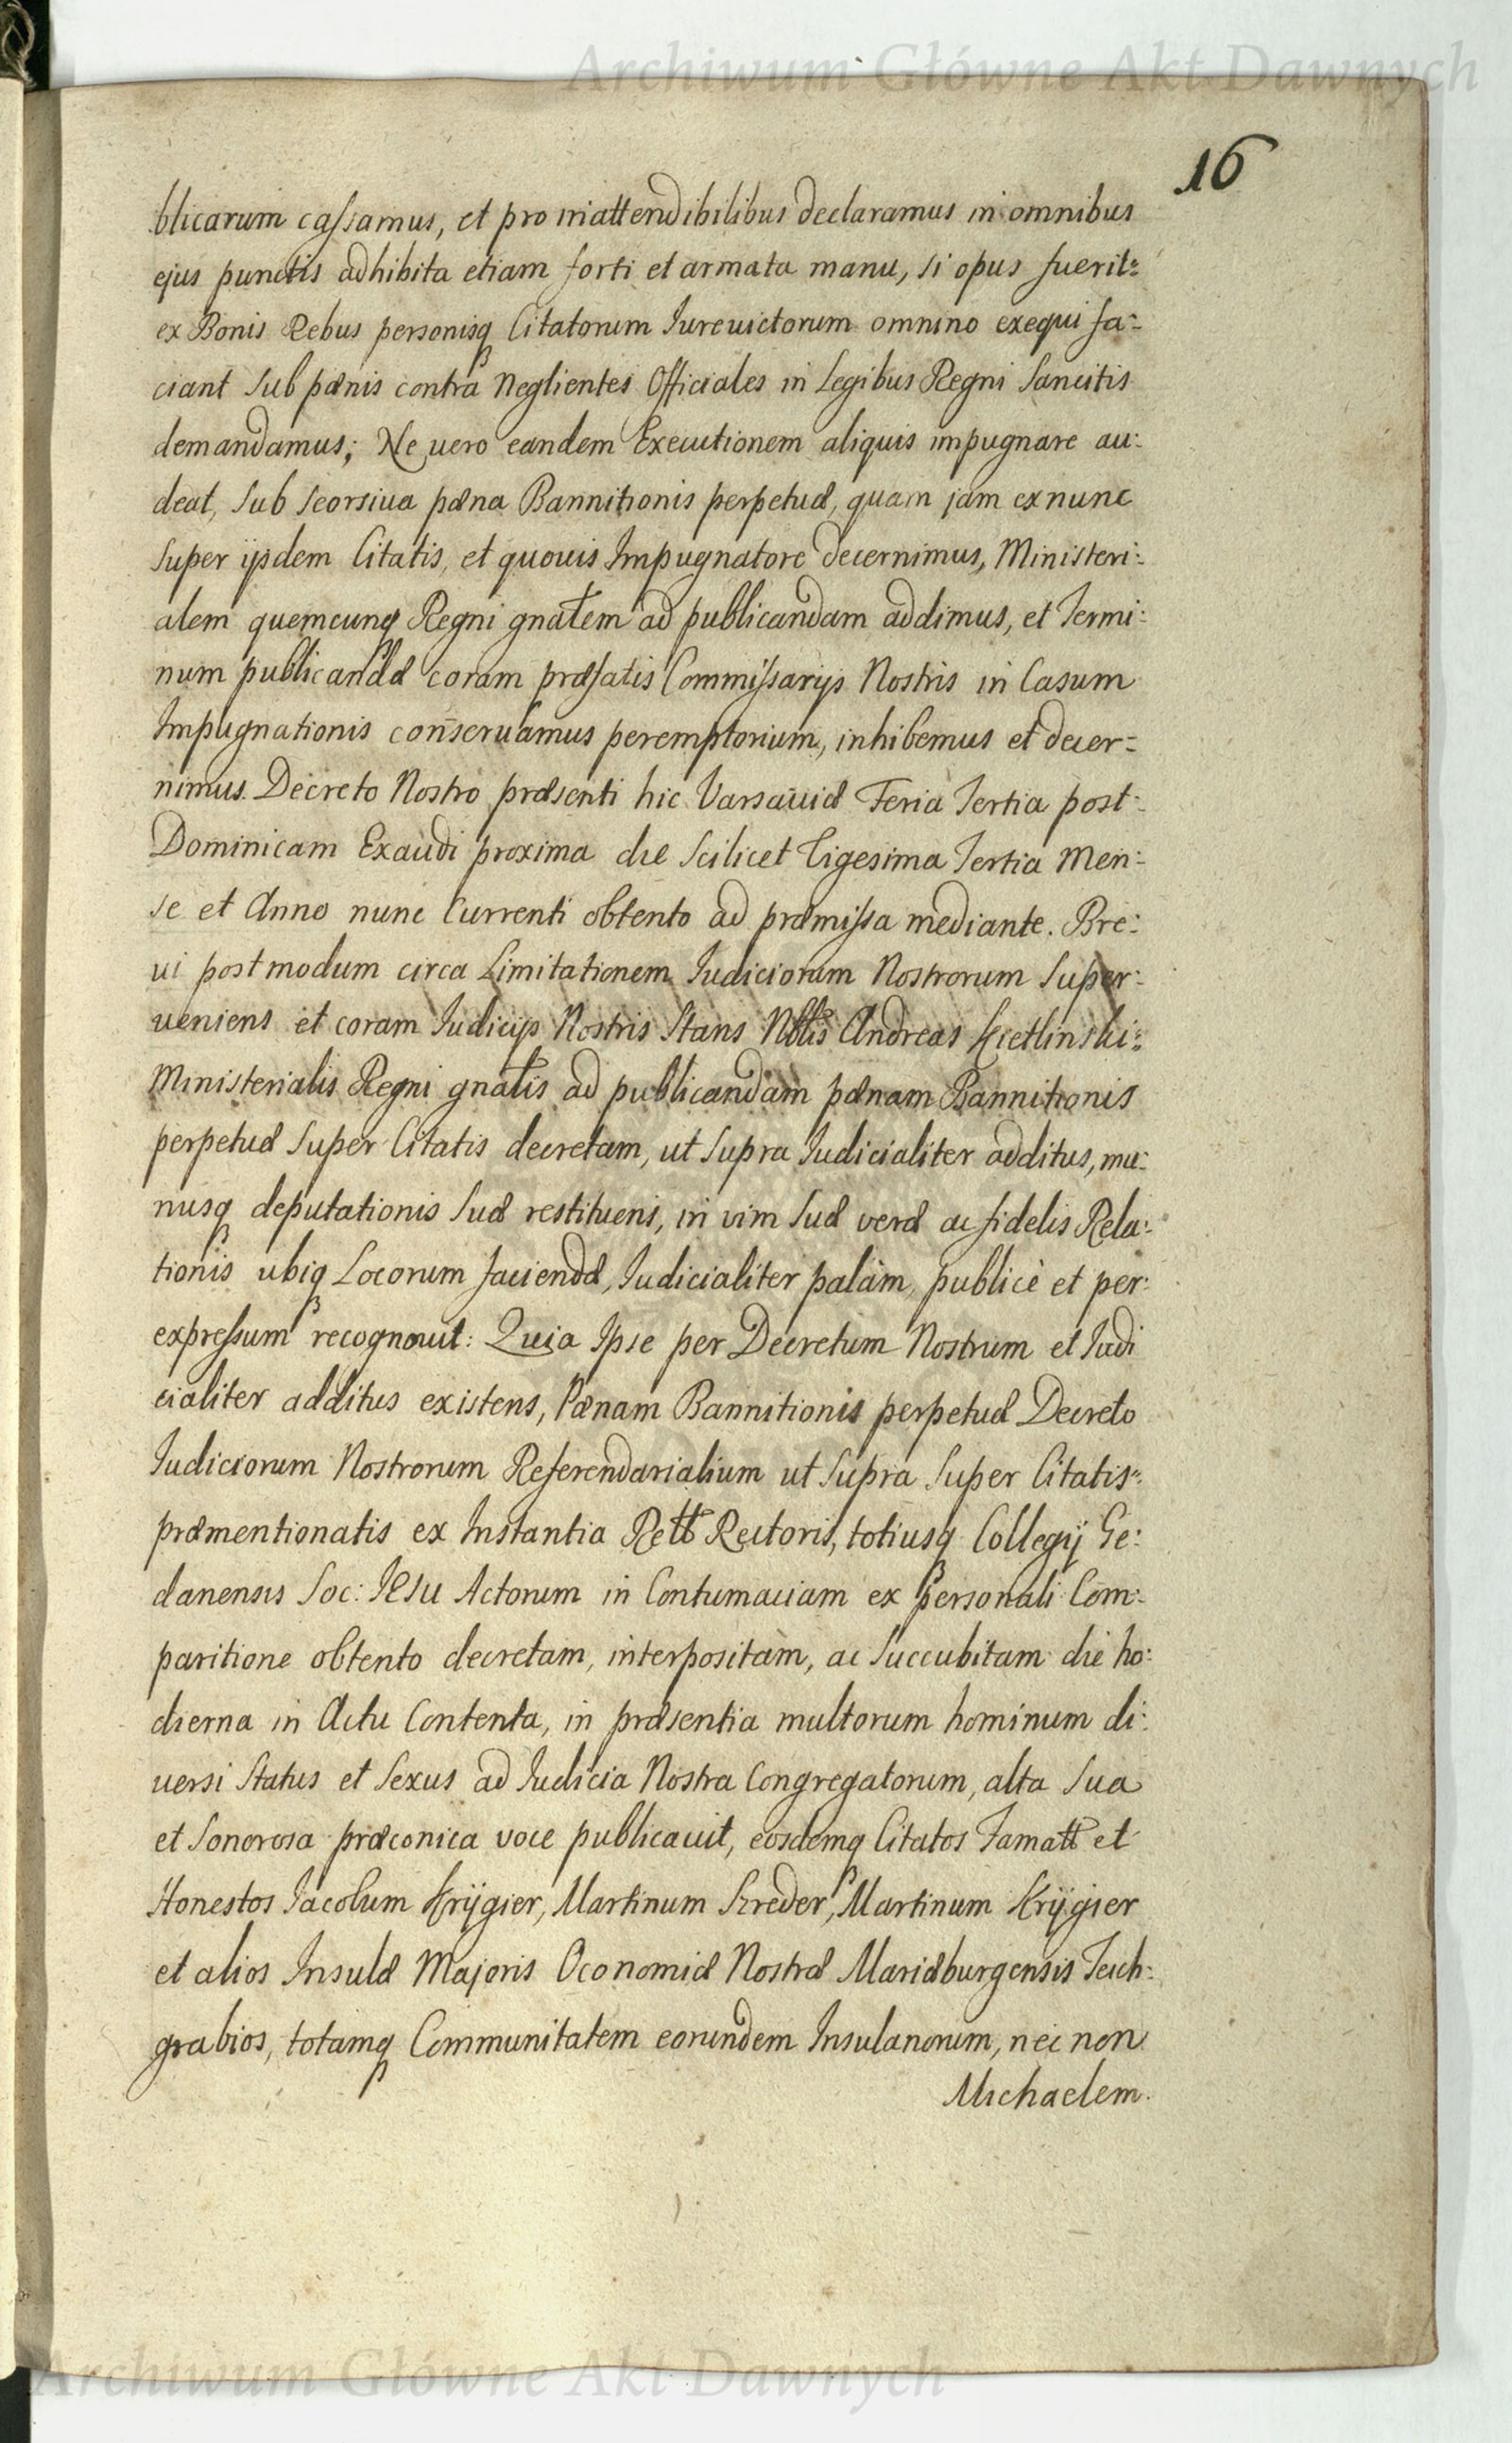 Archiwum Główne Akt Dawnych
16
blicarum cassamus, et pro inattendibilibus declaramus in omnibus
ejus punctis adhibita etiam forti et armata manu, si opus fuerit:
ex Bonis Rebus personisq Citatorum Iurevictorum omnino exequi fa:
ciant sub pænis contra Neglientes Officiales in Legibus Regni Sancitis
demandamus; Ne vero eandem Executionem aliquis impugnare au:
deat, sub seorsiva pæna Bannitionis perpetuæ, quam jam ex nunc
super ijsdem Citatis, et quovis Impugnatore decernimus, Ministeri:
alem quemcunq Regni gnalem ad publicandam addimus, et Termi:
num publicandæ coram præfatis Commissarijs Nostris in Casum
Impugnationis conservamus peremptorium, inhibemus et decer:
nimus. Decreto Nostro præsenti hic Varsaviæ Feria Tertia post:
Dominicam Exaudi proxima die scilicet Vigesima Tertia Men:
se et Anno nunc Currenti obtento ad præmissa mediante. Bre:
vi postmodum circa Limitationem Iudiciorum Nostrorum super:
veniens et coram Iudicijs Nostris Stans Nblis Andreas Kietlinski:
Ministerialis Regni gnalis ad publicandam pænam Bannitionis
perpetuæ super Citatis decretam, ut supra Iudicialiter additus, mu:
nusq deputationis suæ restituens, in vim suæ veræ ac fidelis Rela:
tionis ubiq Locorum faciendæ, Iudicialiter palàm, publicè et per:
expressum recognovit: Quia Ipse per Decretum Nostrum et Iudi
cialiter additus existens, Pænam Bannitionis perpetuæ Decreto
Iudiciorum Nostrorum Referendarialium ut supra super Citatis:
præmentionatis ex Instantia Rello Rectoris, totiusq Collegij Ge:
danensis Soc: Iesu Actorum in Contumaciam ex personali Com:
paritione obtento decretam, interpositam, ac succubitam die ho:
dierna in Actu Contenta, in præsentia multorum hominum di:
versi Status et Sexus ad Iudicia Nostra Congregatorum, alta sua
et sonorosa præconica voce publicavit, eosdemq Citatos Famatt et
Honestos Iacobum Krÿgier, Martinum Szreder, Martinum Krÿgier
et alios Insulæ Majoris Oconomiæ Nostræ Mariæburgensis Teich:
grabios, totamq Communitatem eorundem Insulanorum, nec non
Michaelem.
Archiwum Główne Akt Dawnych